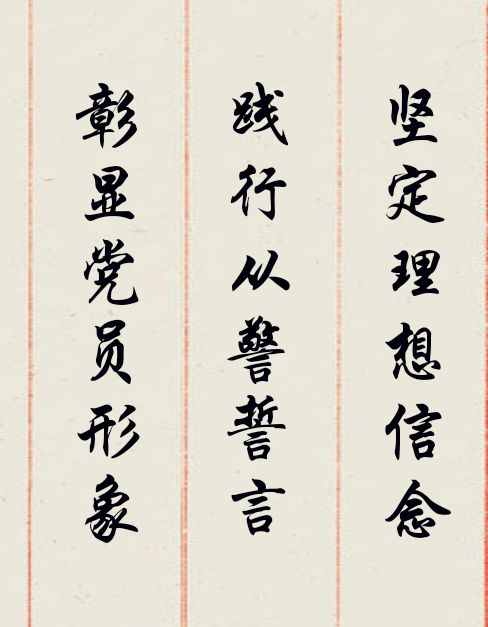 坚定理想信念
践行从警誓言
彰显党员形象